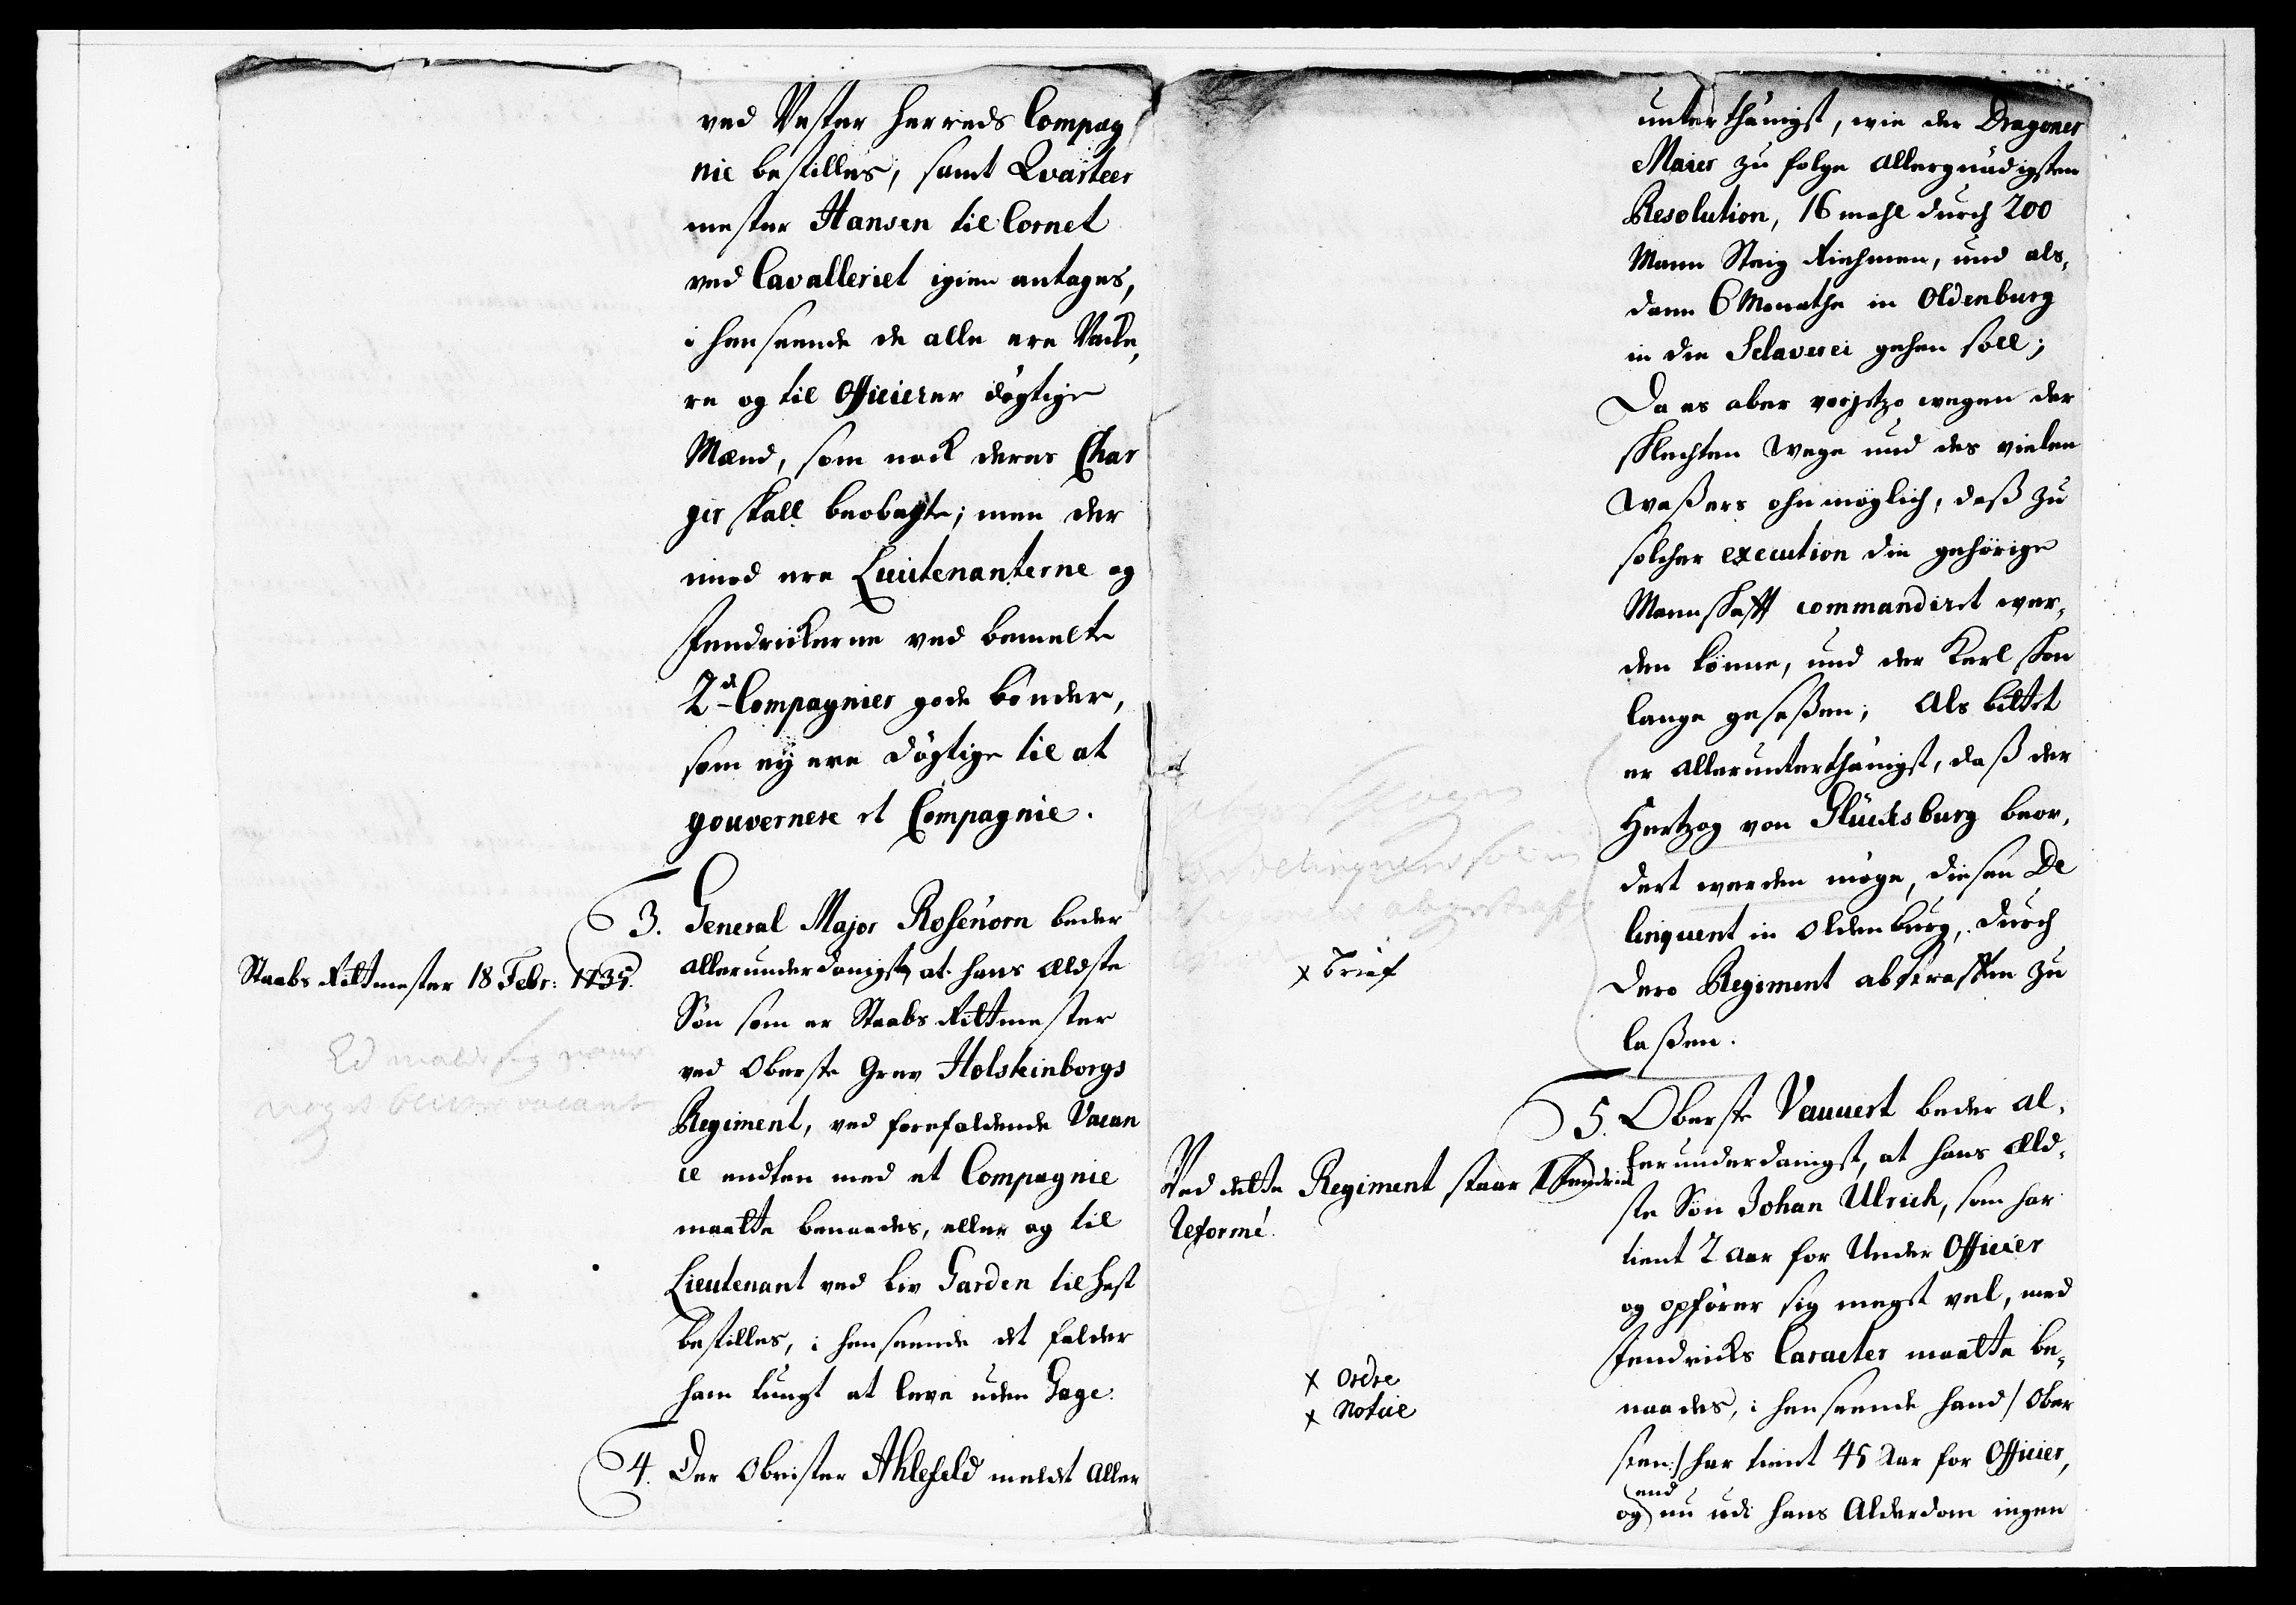 ved Vester Herreds Compag
nie bestilles, samt Qvarteer
mester Hansen til Cornet
ved Cavalleriet igien antages,
i henseende de alle ere Vacke,
re og til Officierer dögtige
Mænd, som nock deres Char
ger skall beobagte; men der
imod ere Luutenanterne og
Fendrickerne ved bemelte
2de Compagnier gode bönder,
som ey ere dögtige til at
gouvernere et Compagnie.
3. General Major Rosenorn beder
allerunderdanigst, at hans ældste
Sön som er Staabs Rittmester
ved Oberste Grev Holsteinborgs
Regiment, ved forefaldende Vacan
ce endten med et Compagnie
maatte benaades, eller og til
Lieutenant ved Liv Garden til Hest
bestilles, i henseende det falder
ham tungt at leve uden Gage.
Staabs Rittmester 18 Febr: 1735.
4. Der Obrister Ahlefeld meldet aller
unterthänigst, wie der Dragoner
Maier zu folge allergnädigsten
Resolution, 16 mahl durch 200
Mann Steig Riehmen, und als,
dann 6 Monathe in Oldenburg
in die Sclaverei gehen soll;
Da es aber vorjetzo wegen der
schlechten Wege und des vielen
Waßers ohnmöglich, daß zu
solcher execution die gehörige
Mannschafft commandiret wer,
den könne, und der Kerl schon
lange geseßen; Als bittet
er allerunterthänigst, daß der
Hertzog von Glücksburg beor,
dert werden möge, diesen De
linquent in Oldenburg, durch
Dero Regiment abstraffen zu
laßen.
x Brief
5. Oberste Vauuert beder al,
lerunderdanigst, at hans Æld,
ste Sön Johan Ulrich, som har
tient 2 Aar for Under Officier
og opförer sig megst vel, med
Fendricks Caracter maatte be,
naades, i henseende hand /: Ober
sten :/ har tient 45 Aar for Officier,
og end nu udi hans Alderdom ingen
Ved dette Regiment staar 1 Fendrick
Reformé.
x Ordre
x Notice